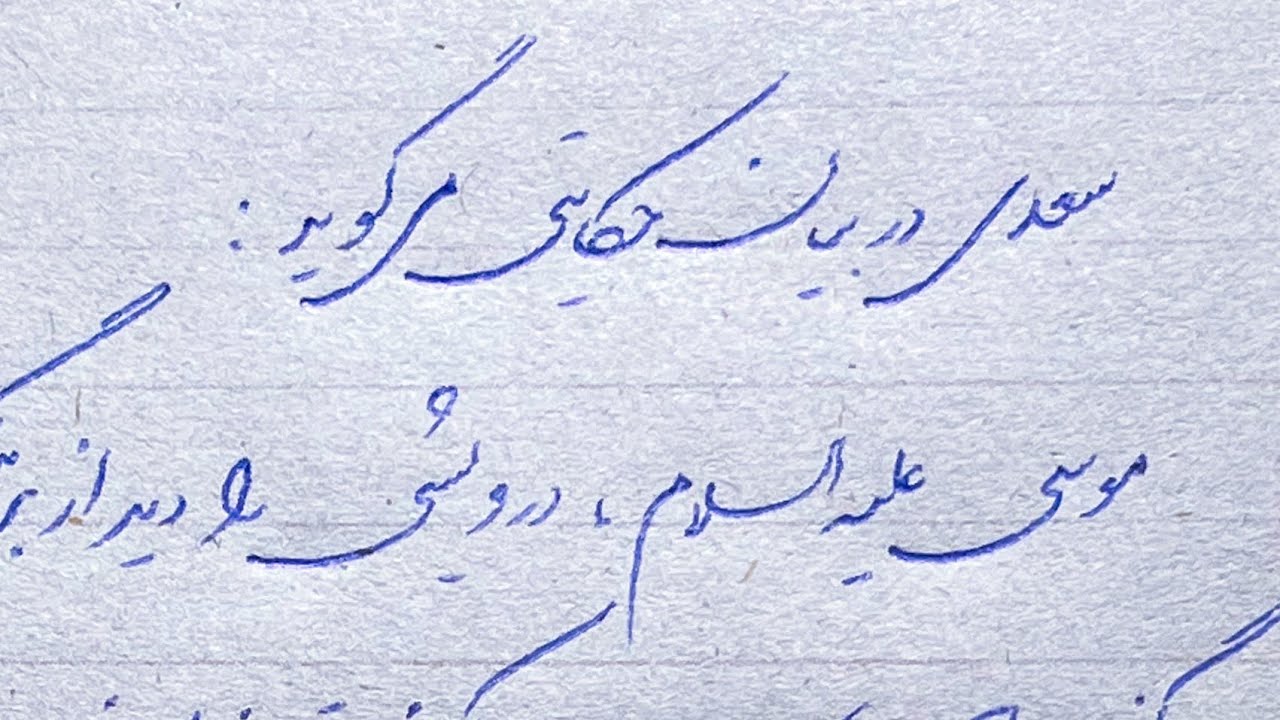 سعدی در بیان حکایتی می‌گوید :
موسی علیه السلام ، درویشی را دید از